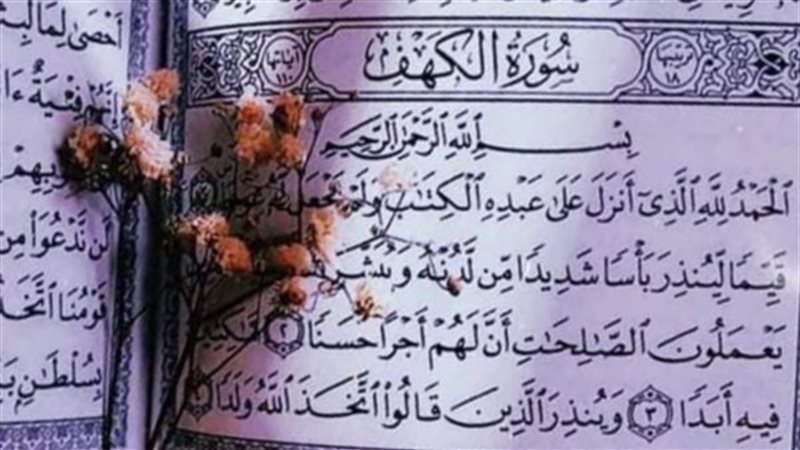 ترتيبها ١٨ سُورَةُ الكَهْفِ آياتها ١١٠
بِسْمِ ٱللَّهِ ٱلرَّحْمَٰنِ ٱلرَّحِيمِ
ٱلْحَمْدُ لِلَّهِ ٱلَّذِىٓ أَنزَلَ عَلَىٰ عَبْدِهِ ٱلْكِتَٰبَ وَلَمْ يَجْعَل لَّهُۥ
قَيِّمًا لِّيُنذِرَ بَأْسًا شَدِيدًا مِّن لَّدُنْهُ وَيُبَشِّرَ
يَعْمَلُونَ ٱلصَّٰلِحَٰتِ أَنَّ لَهُمْ أَجْرًا حَسَنًا ٢
فِيهِ أَبَدًا ٣ وَيُنذِرَ ٱلَّذِينَ قَالُوا۟ ٱتَّخَذَ ٱللَّهُ وَلَدًا
أَحْصَىٰ لِمَا لَبِثُ
إِنَّهُمْ فِتْيَةٌ ءَا
لَن نَّدْعُوَا۟ مِن
قَوْمُنَا ٱتَّخَذُ
بِسُلْطَٰنٍ بَ